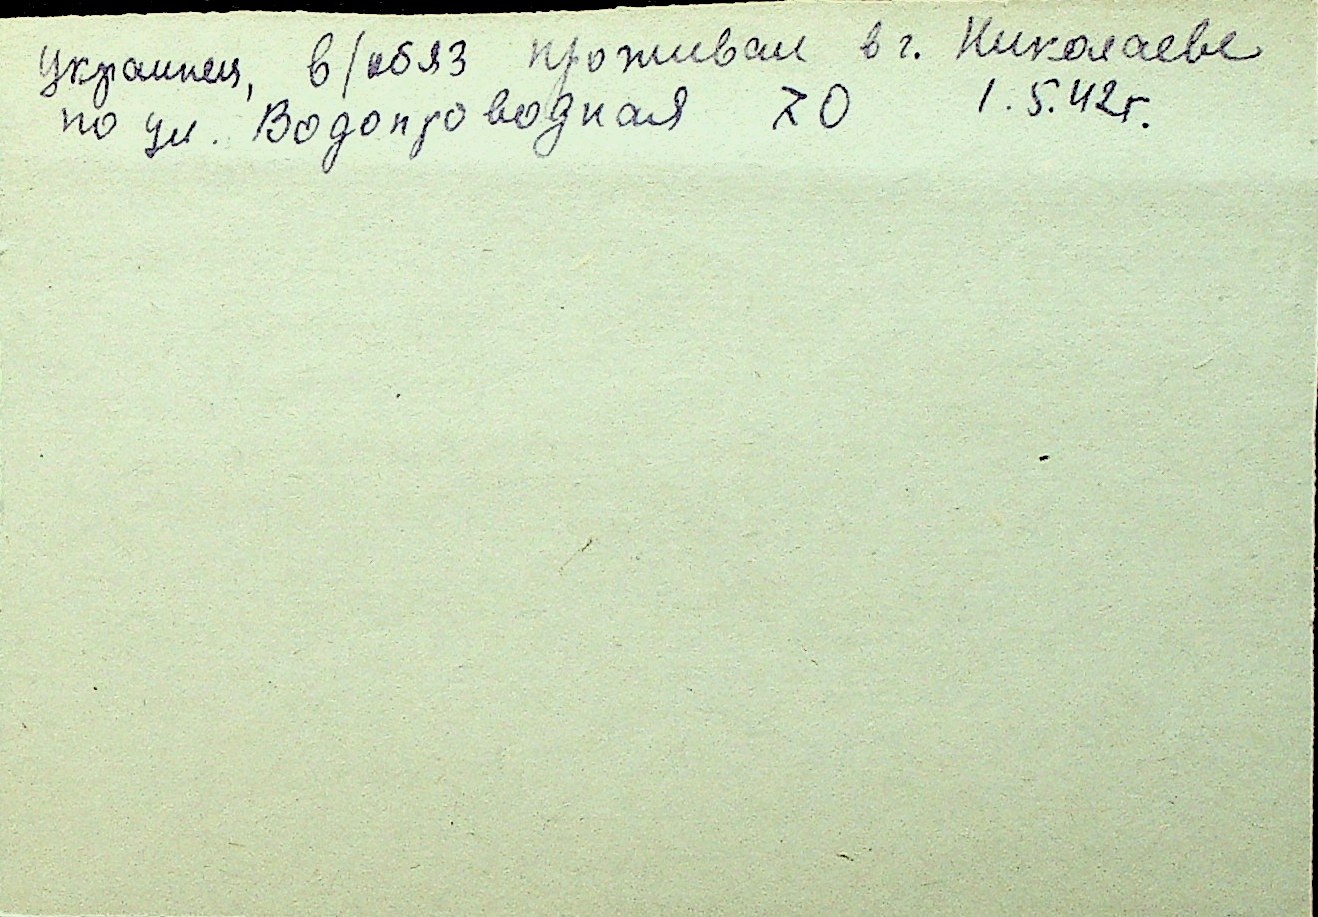 Украинец, в/обяз проживал в г. Николаеве
по ул. Водопроводная 70 1.5.42г.